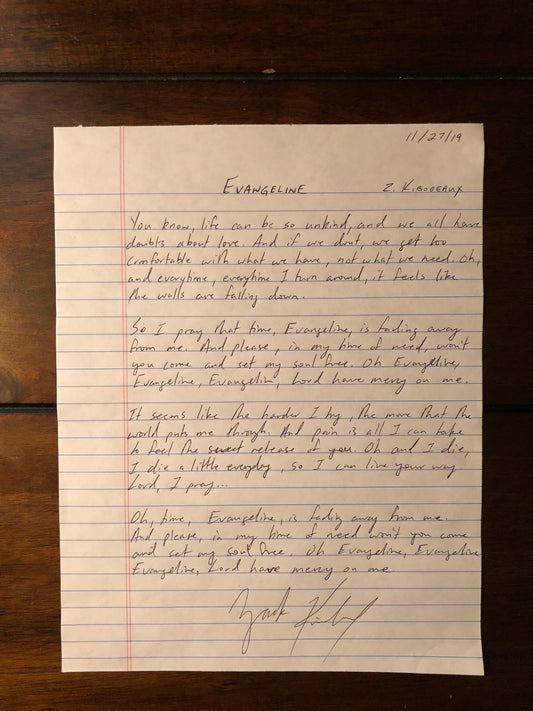 11/27/19
EVANGELINE Z. KIBODEAUX
You know, life can be so unkind, and we all have
doubts about love. And if we dont, we get too
comfortable with what we have, not what we need. Oh,
and everytime, everytime I turn around, it feels like
the walls are falling down.
So I pray that time, Evangeline, is fading away
from me. And please, in my time of need, won't
you come and set my soul free. Oh Evangeline,
Evangeline, Evangelin, Lord have mercy on me.
It seems like the harder I try, the more that the
world puts me through. And pain is all I can take
to feel the sweet release of you. Oh and I die,
I die a little everyday, so I can live your way
Lord, I pray...
Oh, time, Evangeline, is fading away from me.
And please, in my time of need won't you come
and set my soul free. Oh Evangeline, Evangeline
Evangeline, Lord have mercy on me.
Zack